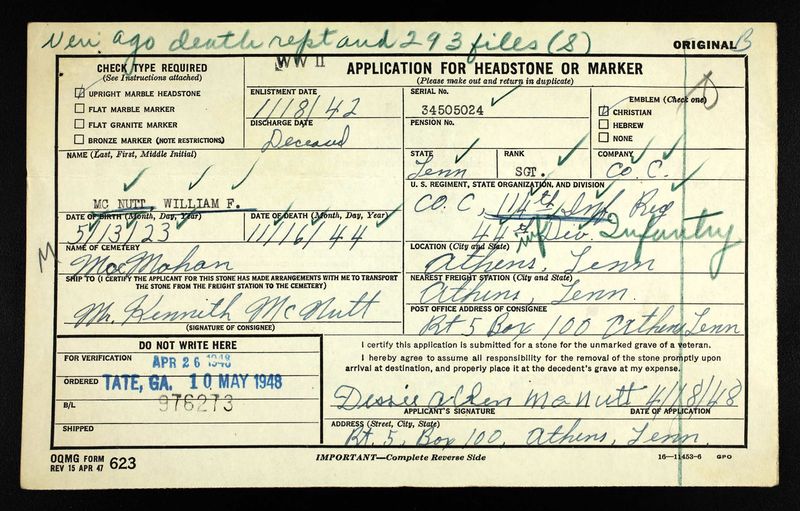 Veri ago death rept and 293 files (8)
ORIGINAL B
WW II
CHECK TYPE REQUIRED
(See Instructions attached)
UPRIGHT MARBLE HEADSTONE
FLAT MARBLE MARKER
FLAT GRANITE MARKER
BRONZE MARKER (NOTE RESTRICTIONS)
APPLICATION FOR HEADSTONE OR MARKER
(Please make out and return in duplicate)
ENLISTMENT DATE
11/8/42
DISCHARGE DATE
Deceased
SERIAL No.
34505024
PENSION No.
EMBLEM (Check one)
CHRISTIAN
HEBREW
NONE
NAME (Last, First, Middle Initial)
MC NUTT, WILLIAM F.
STATE
Tenn
RANK
SGT.
COMPANY
CO. C.
U. S. REGIMENT, STATE ORGANIZATION, AND DIVISION
CO. C, 114th Inf Reg
44th Div. Infantry
DATE OF BIRTH (Month, Day, Year)
5/13/23
DATE OF DEATH (Month, Day, Year)
11/16/44
M
NAME OF CEMETERY
MacMahan
LOCATION (City and State)
Athens, Tenn
SHIP TO (I CERTIFY THE APPLICANT FOR THIS STONE HAS MADE ARRANGEMENTS WITH ME TO TRANSPORT
THE STONE FROM THE FREIGHT STATION TO THE CEMETERY)
Mr. Kenneth McNutt
(SIGNATURE OF CONSIGNEE)
NEAREST FREIGHT STATION (City and State)
Athens, Tenn.
POST OFFICE ADDRESS OF CONSIGNEE
Rt 5 Box 100 Athens Tenn
DO NOT WRITE HERE
FOR VERIFICATION
APR 26 1948
ORDERED
TATE, GA. 10 MAY 1948
B/L
976273
SHIPPED
I certify this application is submitted for a stone for the unmarked grave of a veteran.
I hereby agree to assume all responsibility for the removal of the stone promptly upon
arrival at destination, and properly place it at the decedent's grave at my expense.
Dessie Alden McNutt 4/18/48
APPLICANT'S SIGNATURE
DATE OF APPLICATION
ADDRESS (Street, City, State)
Rt. 5, Box 100, Athens, Tenn.
OQMG FORM
REV 15 APR 47 623
IMPORTANT—Complete Reverse Side
16—11453-6 GPO